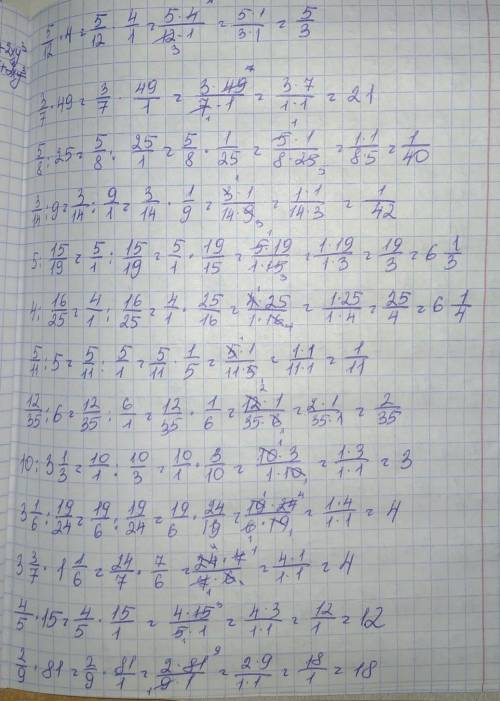 5/12 · 4 = 5/12 · 4/1 = 5·4/12·1 = 5·1/3·1 = 5/3
3/7 · 49 = 3/7 · 49/1 = 3·49/7·1 = 3·7/1·1 = 21
5/8 : 25 = 5/8 : 25/1 = 5/8 · 1/25 = 5·1/8·25 = 1·1/8·5 = 1/40
3/14 : 9 = 3/14 : 9/1 = 3/14 · 1/9 = 3·1/14·9 = 1·1/14·3 = 1/42
5 : 15/19 = 5/1 : 15/19 = 5/1 · 19/15 = 5·19/1·15 = 1·19/1·3 = 19/3 = 6 1/3
4 : 16/25 = 4/1 : 16/25 = 4/1 · 25/16 = 4·25/1·16 = 1·25/1·4 = 25/4 = 6 1/4
5/11 : 5 = 5/11 : 5/1 = 5/11 · 1/5 = 5·1/11·5 = 1·1/11·1 = 1/11
12/35 : 6 = 12/35 : 6/1 = 12/35 · 1/6 = 12·1/35·6 = 2·1/35·1 = 2/35
10 : 3 1/3 = 10/1 : 10/3 = 10/1 · 3/10 = 10·3/1·10 = 1·3/1·1 = 3
3 1/6 : 19/24 = 19/6 : 19/24 = 19/6 · 24/19 = 19·24/6·19 = 1·4/1·1 = 4
3 3/7 · 1 1/6 = 24/7 · 7/6 = 24·7/7·6 = 4·1/1·1 = 4
4/5 · 15 = 4/5 · 15/1 = 4·15/5·1 = 4·3/1·1 = 12/1 = 12
2/9 · 81 = 2/9 · 81/1 = 2·81/9·1 = 2·9/1·1 = 18/1 = 18